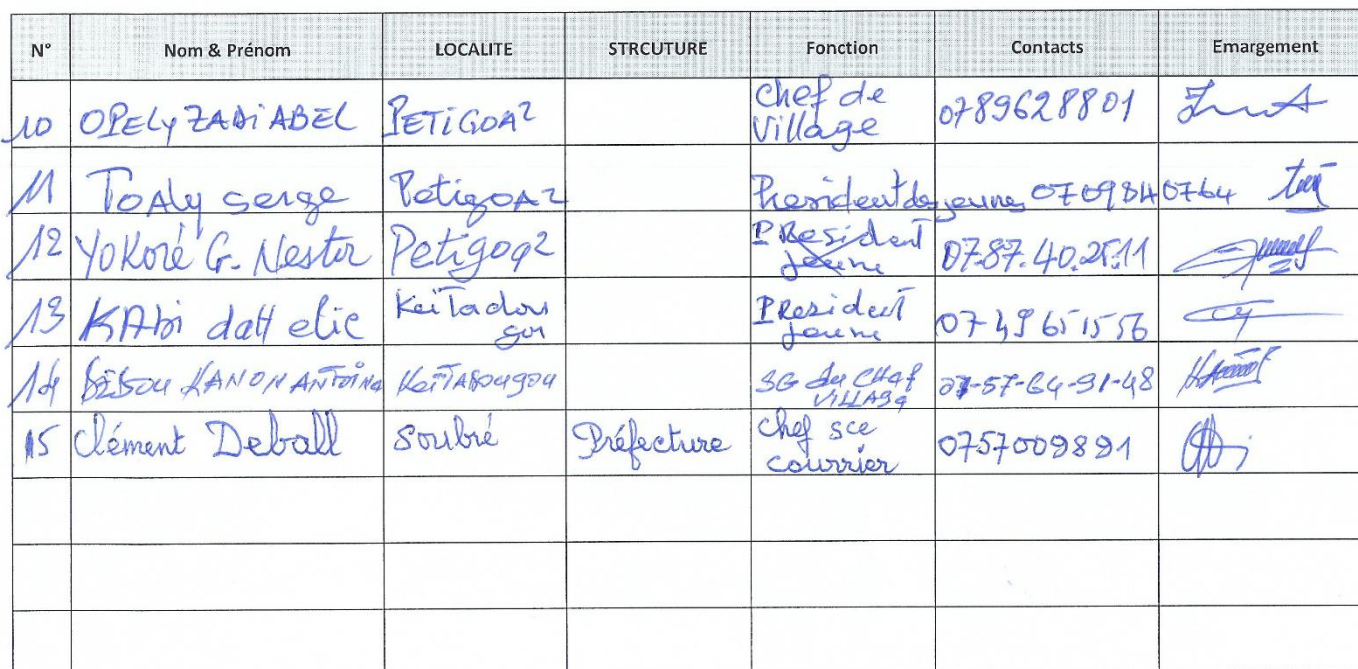 N° Nom & Prénom LOCALITE STRCUTURE Fonction Contacts Emargement
10 OPELY ZADI ABEL PETIGOA2 chef de Village 0789628801
11 Toaly serge PetigoA2 President des jeunes 0709840764
12 Yokoré G. Nestor Petigoa2 PResident jeune 07.87.40.25.11
13 KAbi datt elie KeiTadougou PResident jeune 0749651556
14 KANON ANTOINE KeiTADougou SG du CHef VILLAGe 07-57-64-91-48
15 Clément Deball Soubré Préfecture chef sce courrier 0757009891